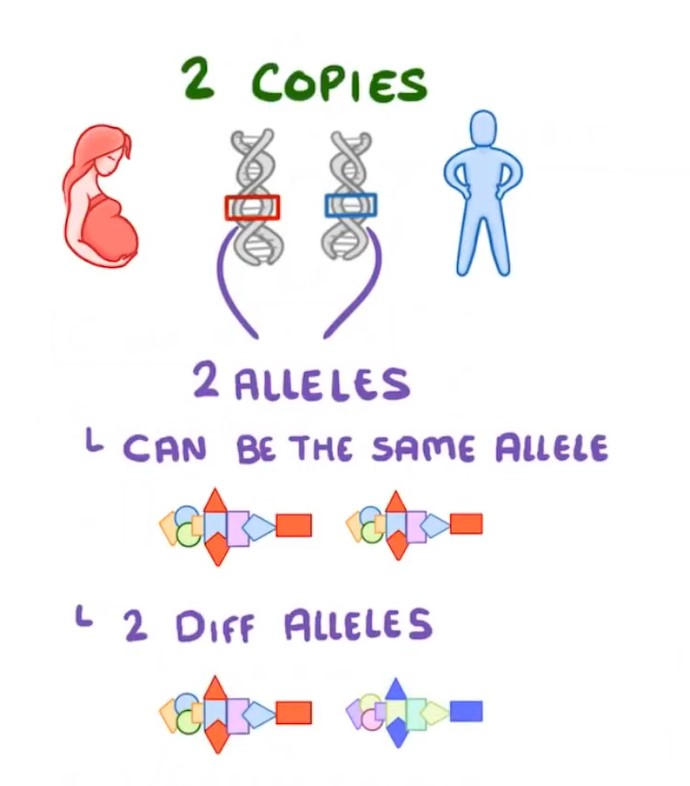 2 COPIES
2 ALLELES
└ CAN BE THE SAME ALLELE
└ 2 DIFF ALLELES